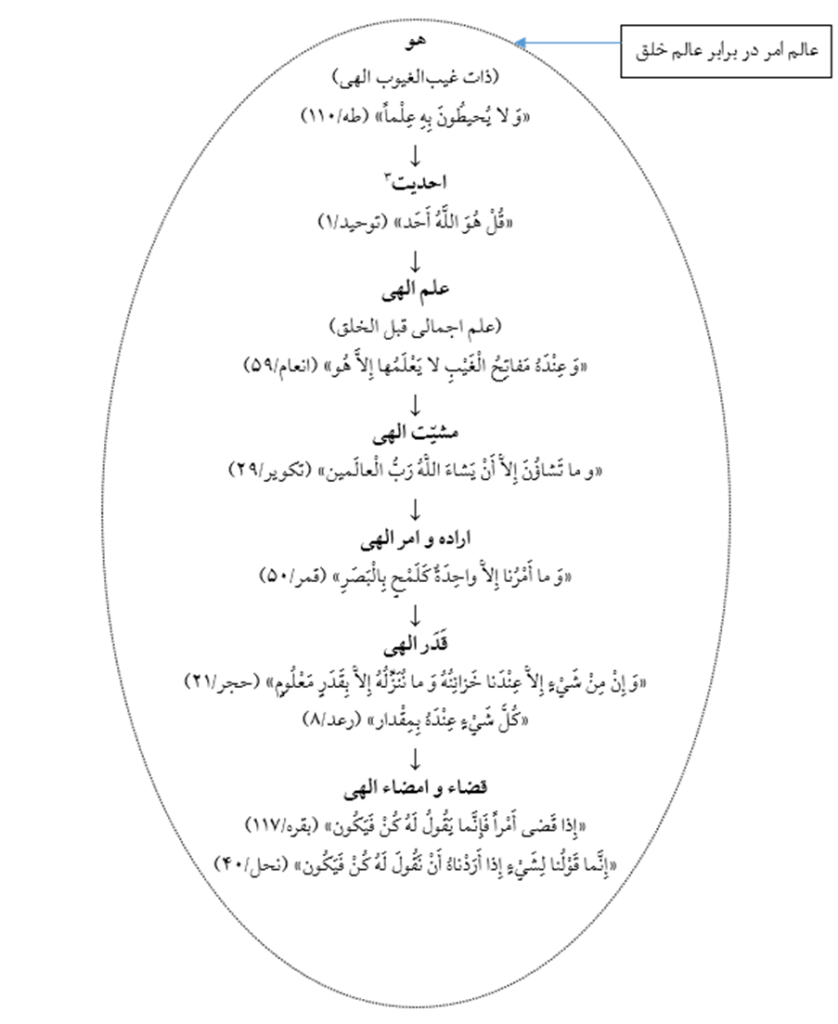 عالم امر در برابر عالم خلق
هو
(ذات غیب‌الغیوب الهی)
«وَ لا يُحيطُونَ بِهِ عِلْماً» (طه/۱۱۰)
↓
احدیت۳
«قُلْ هُوَ اللَّهُ أَحَد» (توحید/۱)
↓
علم الهی
(علم اجمالی قبل الخلق)
«وَ عِنْدَهُ مَفاتِحُ الْغَيْبِ لا يَعْلَمُها إِلاَّ هُو» (انعام/۵۹)
↓
مشیّت الهی
«و ما تَشاؤُنَ إِلاَّ أَنْ يَشاءَ اللَّهُ رَبُّ الْعالَمين» (تکویر/۲۹)
↓
اراده و امر الهی
«وَ ما أَمْرُنا إِلاَّ واحِدَةٌ كَلَمْحٍ بِالْبَصَرِ» (قمر/۵۰)
↓
قَدَر الهی
«وَ إِنْ مِنْ شَيْءٍ إِلاَّ عِنْدَنا خَزائِنُهُ وَ ما نُنَزِّلُهُ إِلاَّ بِقَدَرٍ مَعْلُومٍ» (حجر/۲۱)
«كُلُّ شَيْءٍ عِنْدَهُ بِمِقْدار» (رعد/۸)
↓
قضاء و امضاء الهی
«إِذا قَضى أَمْراً فَإِنَّما يَقُولُ لَهُ كُنْ فَيَكُون» (بقره/۱۱۷)
«إِنَّما قَوْلُنا لِشَيْءٍ إِذا أَرَدْناهُ أَنْ نَقُولَ لَهُ كُنْ فَيَكُون» (نحل/۴۰)